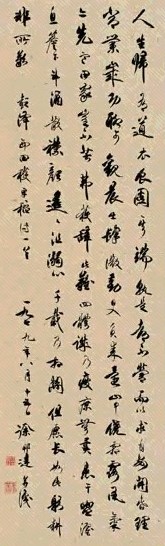 人生歸有道衣食固其端孰是都不營而以求自安開春理
常業歲功聊可觀晨出肆微勤日入負耒還山中饒霜露風氣
亦先寒田家豈不苦弗獲辭此難四體誠乃疲庶無異患干盥濯
息簷下斗酒散襟顏遙遙沮溺心千載乃相關但願長如此躬耕
非所歎 彭澤西田穫早稻詩一首
一九七九年八月 徐邦達